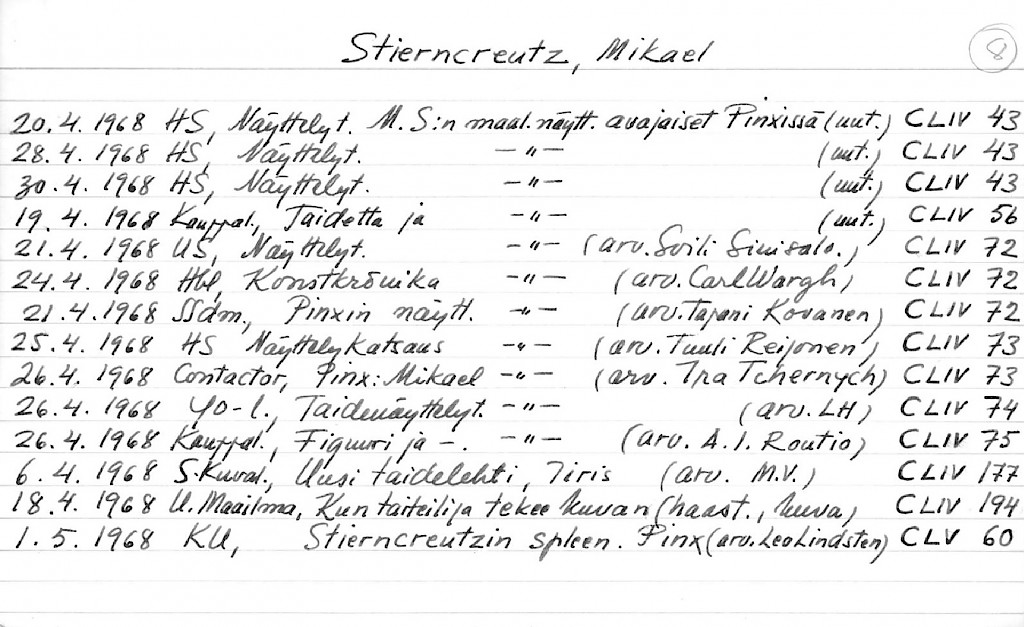 Stierncreutz, Mikael 8
20.4.1968 HS, Näyttelyt. M.S:n maal.näytt. avajaiset Pinxissä (uut.) CLIV 43
28.4.1968 HS, Näyttelyt. —"— (uut.) CLIV 43
30.4.1968 HS, Näyttelyt. —"— (uut.) CLIV 43
19.4.1968 Kauppal., Taidetta ja —"— (uut.) CLIV 56
21.4.1968 US, Näyttelyt. —"— (arv. Soili Sinisalo.) CLIV 72
24.4.1968 Hbl, Konstkrönika —"— (arv. Carl Wargh) CLIV 72
21.4.1968 SSdm, Pinxin näytt. —"— (arv. Tapani Kovanen) CLIV 72
25.4.1968 HS Näyttelykatsaus —"— (arv. Tuuli Reijonen) CLIV 73
26.4.1968 Contactor, Pinx: Mikael —"— (arv. Ira Tchernych) CLIV 73
26.4.1968 Yo-l., Taidenäyttelyt. —"— (arv. LH) CLIV 74
26.4.1968 Kauppal., Figuuri ja -. —"— (arv. A.I. Routio) CLIV 75
6.4.1968 S.Kuval., Uusi taidelehti, Iiris (arv. M.V.) CLIV 177
18.4.1968 U.Maailma, Kun taiteilija tekee kuvan (haast., kuva) CLIV 194
1.5.1968 KU, Stierncreutzin spleen. Pinx (arv. Leo Lindsten) CLV 60